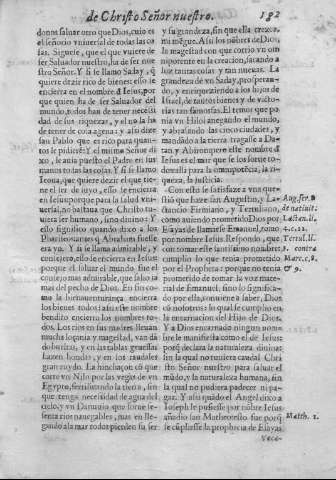 de Christo Señor nuestro. 192
donde saluar otro que Dios, cuio es
el señorio vniuersal de todas las co
sas. Siguese, que el que viniere de
ser Saluador nuestro, ha de ser nue
stro Señor. Y si se llamo Saday, q̃
quiere dezir rico de bienes: esso se
encierra en el nombre de Iesus, por
que quien ha de ser Saluador del
mundo, todos han de tener necessi
dad de sus riquezas, y el no la ha
de tener de cosa agena: y assi dize
san Pablo que es rico para quan-
xo, le auia puesto el Padre en sus
manos todas las cosas. Y si se llamo
en Iesus porque para la salud vni-
uersal, no bastaua que Christo tu-
uiera ser humano, sino diuino: y
ello significo quando dixo a los
Phariseos
que Abraham fuesse
era yo. Y si se llama admirable, y
consejero, ello se encierra en Iesus
porque el saluar el mundo fue el
mas del pecho de Dios. En fin co-
mo la bienauenturança encierra
los bienes todos: assi este nombre
bendito encierra los nombres to-
dos. Los rios en sus madres lleuan
mucha loçania y magestad, van dã
do bueltas, y en las tablas grandes
hazen hondo, y en los raudales
gran ruydo. La hinchaçon cõ que
corre vn Nilo por las vegas de
Egypto, fertilizando la tierra, sin
que tenga necessidad de agua de
cielo, y vn Danubio que sorue se-
senta rios nauegables, mas en lle-
gando a la mar todos pierden su ser
y su grandeza, sin que ella crezca,
ni mẽgue. Assi los nõbres de Dios,
la magestad con que corrio vn om
nipotente en la creacion, sacando a
luz tantas cosas y tan nueuas. La
grandeza de vn Saday, prosperan-
do, y enriqueziendo a los hijos de
Israel, de tantos bienes y de victo-
rias tan famosas. El temor que po-
nia vn Heloi anegando el mundo,
y abrasando las cinco ciudades, y
mandado a la tierra tragasse a Da-
tan y Abiron: que esse nombre de
Iesus es el mar que se los sorue to-
dos, assi para la omnipotencia, la ri-
queza, la justicia.
Con esto se satisfaze a vna que-
stiõ que haze san Augustin, y La-
ctancio Firmiano, y Tertuliano,
como auiendo prometido Dios por
Esayas de llamarse Emanuel, tomo
por nombre Iesus. Respondo, que
con tomar este santissimo nombre,
cumplio lo que tenia prometido
por el Propheta: porque no tenia
prometido de tomar la voz mate-
rial de Emanuel, sino lo significa-
do por ella, conuiene a saber, Dios
cõ nosotros: lo qual se cumplio en
la encarnacion del Hijo de Dios.
Y a Dios encarnado ningun nom
bre le manifiesta como el de Iesus:
porq̃ declara la naturaleza diuina:
sin la qual no tuuiera caudal Chri
sto Señor nuestro para saluar el
mũdo, y la naturaleza humana, sin
la qual no pudiera padecer ni pa-
gar. Y assi quãdo el Angel dixo a
Ioseph le pusiesse por nõbre Iesus
añadio san Mathe
se cũpliesse la prophecia de Esayas
Aug. ser. 9
de natiuit.
Lactan. li.
4. c. 12.
Tertul. li.
3. contra
Marc. c. 8.
& 9.
Matth. 1.